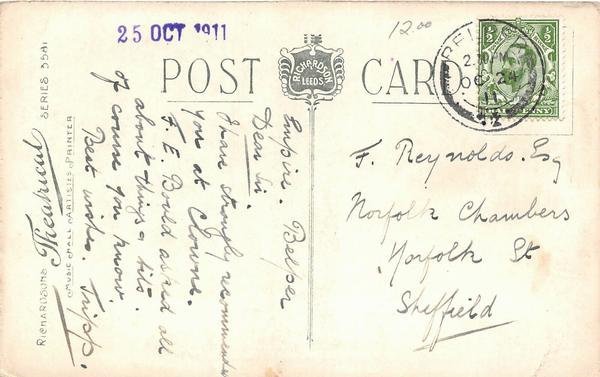 25 OCT 1911
12.00
POST CARD
RICHARDSON
LEEDS
BELPER
2.30PM
OC 24
11
RICHARDSONS Theatrical SERIES 5581
MUSIC HALL & ARTISTES PRINTER
Empire. Belper
Dear Sir.
I have strongly recommended
you at Clowne.
F. E. Bould asked all
about things & tits.
of course you know.
Best wishes. Tripp.
F. Reynolds. Esq
Norfolk Chambers
Norfolk St
Sheffield